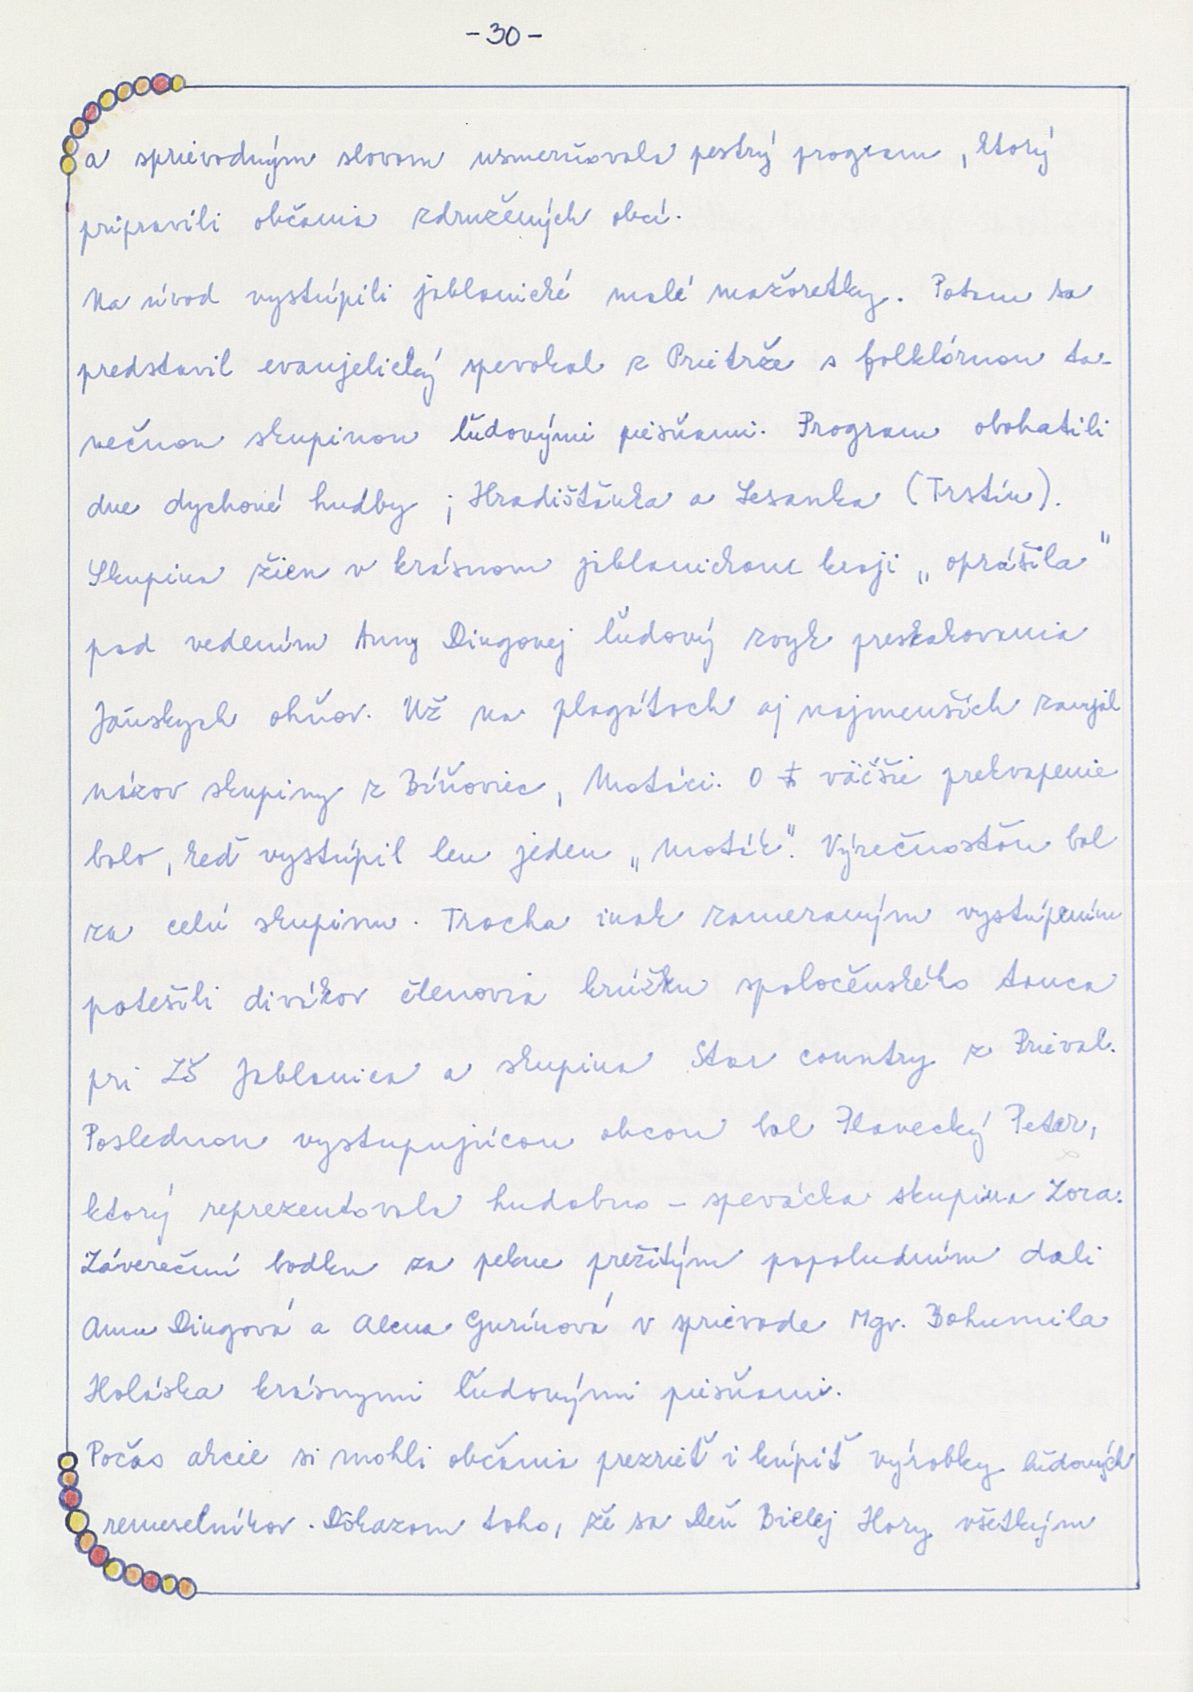 - 30 -
a sprievodným slovom usmerňovala pestrý program, ktorý
pripravili občania združených obcí.
Na úvod vystúpili jablonické malé mažoretky. Potom sa
predstavil evanjelický spevokol z Prietrže s folklórnou ta-
nečnou skupinou ľudovými piesňami. Program obohatili
dve dychové hudby ; Hradišťanka a Lesanka (Trstín).
Skupina žien v krásnom jablonickom kroji „oprášila"
pod vedením Anny Dingovej ľudový zvyk preskakovania
Jánskych ohňov. Už na plagátoch aj najmenších zaujal
názov skupiny z Bíňoviec, Motáci. O väčšie prekvapenie
bolo, keď vystúpil len jeden „Moták". Výrečnosťou bol
za celú skupinu. Trocha inak zameraným vystúpením
potešili divákov členovia krúžku spoločenského tanca
pri ZŠ Jablonica a skupina Star country z Prieval.
Poslednou vystupujúcou obcou bol Plavecký Peter,
ktorý reprezentovala hudobno - spevácka skupina Zora.
Záverečnú bodku za pekne prežitým popoludním dali
Anna Dingová a Alena Gurínová v sprievode Mgr. Bohumila
Holáska krásnymi ľudovými piesňami.
Počas akcie si mohli občania prezrieť i kúpiť výrobky ľudových
remeselníkov. Dôkazom toho, že sa Deň Bielej Hory všetkým